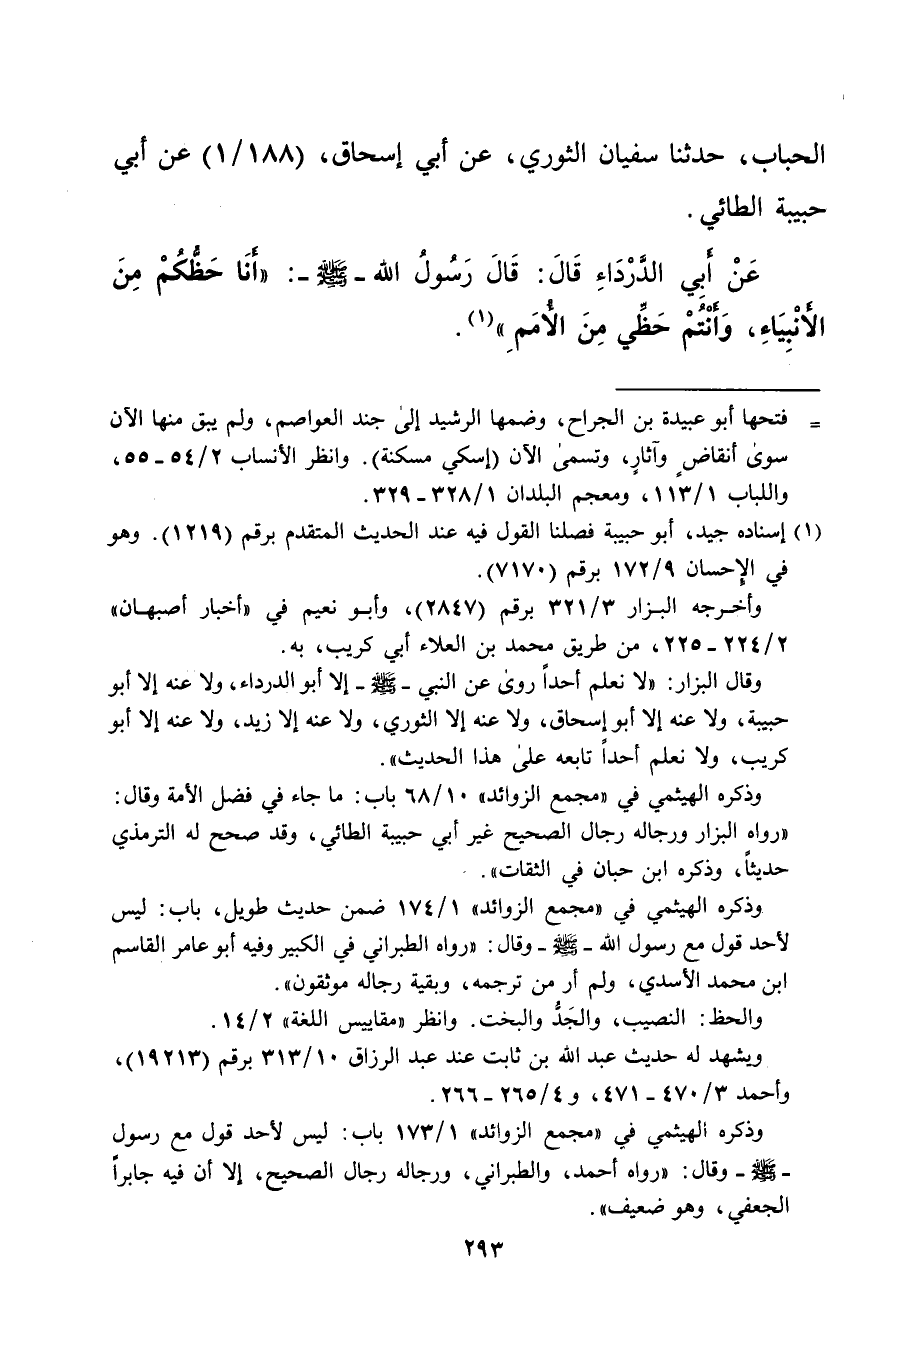 الحباب، حدثنا سفيان الثوري، عن أبي إسحاق، (١/١٨٨) عن أبي
حبيبة الطائي.
عَنْ أَبِي الدَّرْدَاءِ قَالَ: قَالَ رَسُولُ الله ـ ﷺ ـ: «أَنَا حَظُّكُمْ مِنَ
الأَنْبِيَاءِ، وَأَنْتُمْ حَظِّي مِنَ الأُمَمِ»(١).
= فتحها أبو عبيدة بن الجراح، وضمها الرشيد إلىٰ جند العواصم، ولم يبق منها الآن
سوىٰ أنقاضٍ وآثارٍ، وتسمىٰ الآن (إسكي مسكنة). وانظر الأنساب ٥٤/٢ ـ ٥٥،
واللباب ١١٣/١، ومعجم البلدان ٣٢٨/١ ـ ٣٢٩.
(١) إسناده جيد، أبو حبيبة فصلنا القول فيه عند الحديث المتقدم برقم (١٢١٩). وهو
في الإحسان ١٧٢/٩ برقم (٧١٧٠).
وأخرجه البزار ٣٢١/٣ برقم (٢٨٤٧)، وأبو نعيم في «أخبار أصبهان»
٢٢٤/٢ ـ ٢٢٥، من طريق محمد بن العلاء أبي كريب، به.
وقال البزار: «لا نعلم أحداً روىٰ عن النبي ـ ﷺ ـ إلا أبو الدرداء، ولا عنه إلا أبو
حبيبة، ولا عنه إلا أبو إسحاق، ولا عنه إلا الثوري، ولا عنه إلا زيد، ولا عنه إلا أبو
كريب، ولا نعلم أحداً تابعه علىٰ هذا الحديث».
وذكره الهيثمي في «مجمع الزوائد» ٦٨/١٠ باب: ما جاء في فضل الأمة وقال:
«رواه البزار ورجاله رجال الصحيح غير أبي حبيبة الطائي، وقد صحح له الترمذي
حديثاً، وذكره ابن حبان في الثقات».
وذكره الهيثمي في «مجمع الزوائد» ١٧٤/١ ضمن حديث طويل، باب: ليس
لأحد قول مع رسول الله ـ ﷺ ـ وقال: «رواه الطبراني في الكبير وفيه أبو عامر القاسم
ابن محمد الأسدي، ولم أر من ترجمه، وبقية رجاله موثقون».
والحظ: النصيب، والجَدُّ والبخت. وانظر «مقاييس اللغة» ١٤/٢.
ويشهد له حديث عبد الله بن ثابت عند عبد الرزاق ٣١٣/١٠ برقم (١٩٢١٣)،
وأحمد ٤٧٠/٣ ـ ٤٧١، و ٢٦٥/٤ ـ ٢٦٦.
وذكره الهيثمي في «مجمع الزوائد» ١٧٣/١ باب: ليس لأحد قول مع رسول
ـ ﷺ ـ وقال: «رواه أحمد، والطبراني، ورجاله رجال الصحيح، إلا أن فيه جابراً
الجعفي، وهو ضعيف».
٢٩٣